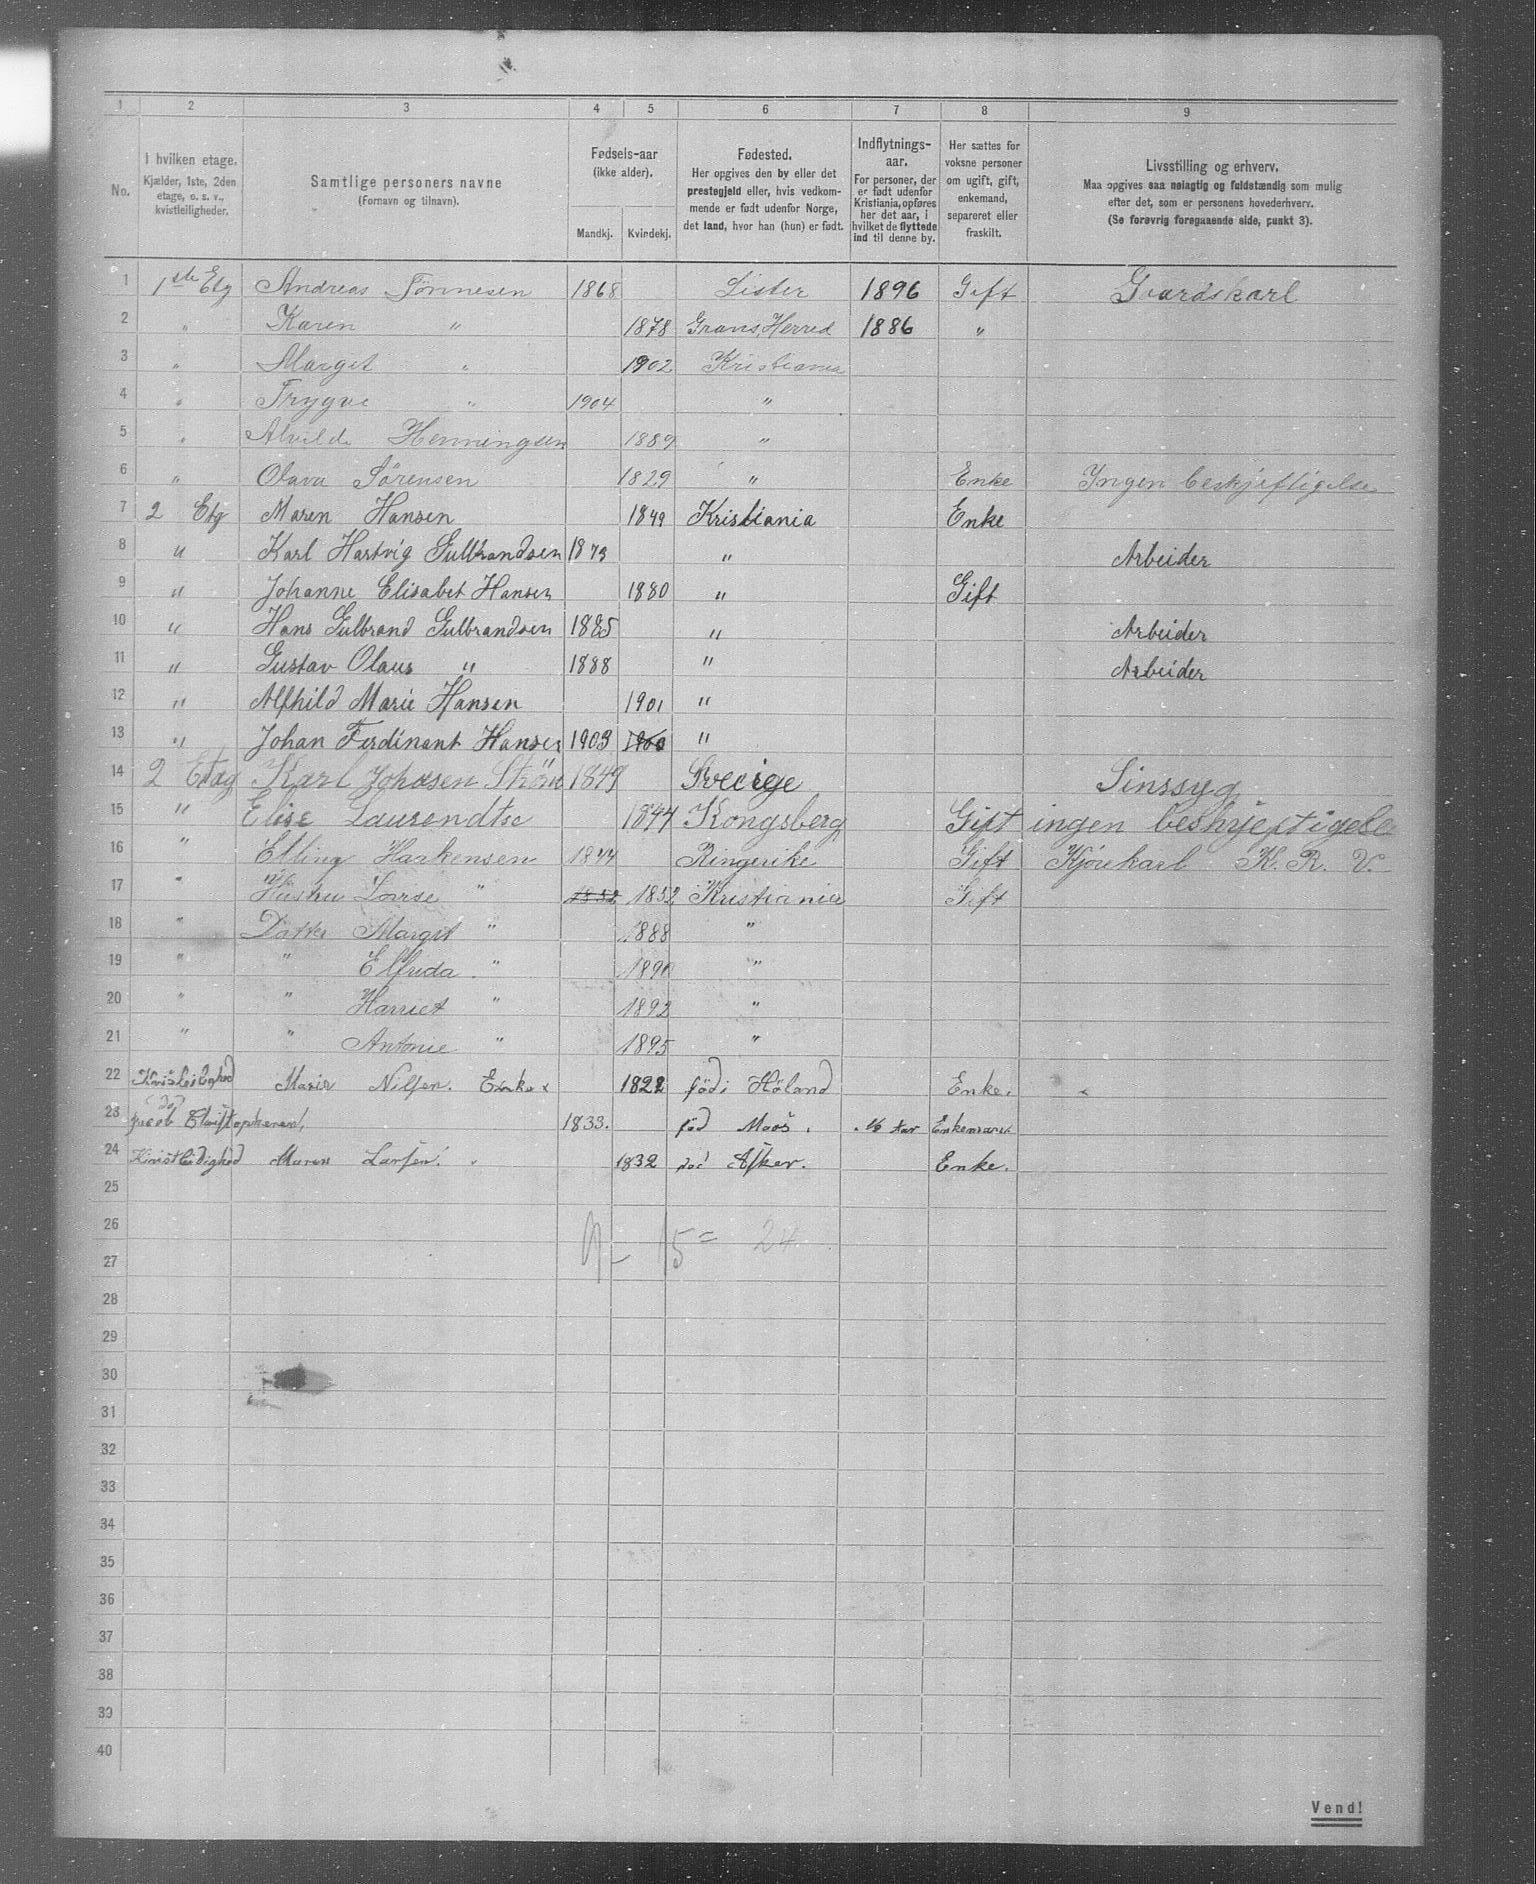 1 2 3 4 5 6 7 8 9
No.
I hvilken etage.
Kjælder, 1ste, 2den
etage, o. s. v.,
kvistleiligheder.
Samtlige personers navne
(Fornavn og tilnavn).
Fødsels-aar
(ikke alder).
Mandkj. Kvindekj.
Fødested.
Her opgives den by eller det
prestegjeld eller, hvis vedkom-
mende er født udenfor Norge,
det land, hvor han (hun) er født.
Indflytnings-
aar.
For personer, der
er født udenfor
Kristiania, opføres
her det aar, i
hvilket de flyttede
ind til denne by.
Her sættes for
voksne personer
om ugift, gift,
enkemand,
separeret eller
fraskilt.
Livsstilling og erhverv.
Maa opgives saa nøiagtig og fuldstændig som mulig
efter det, som er personens hovederhverv.
(Se forøvrig foregaaende side, punkt 3).
1 1ste Etg Andreas Tönnesen 1868 Lister 1896 Gift Gaardskarl
2 " Karen " 1878 Grans Herred 1886 "
3 " Margit " 1902 Kristiania
4 " Trygve " 1904 "
5 " Alvilde Henningsen 1889 "
6 " Olava Sørensen 1829 " Enke Ingen beskjeftigelse
7 2 Etg Maren Hansen 1849 Kristiania Enke
8 " Karl Hartvig Gulbrandsen 1873 " Arbeider
9 " Johanne Elisabet Hansen 1880 " Gift
10 " Hans Gulbrand Gulbrandsen 1885 " Arbeider
11 " Gustav Olaus " 1888 " Arbeider
12 " Alfhild Marie Hansen 1901 "
13 " Johan Ferdinant Hansen 1903 1900 "
14 2 Etag Karl Johasen Ström 1849 Sveeige Sinssyg
15 " Elise Laurendtse 1844 Kongsberg Gift ingen beskjeftigelse
16 " Elling Haakensen 1844 Ringerike Gift Kjørekarl K. R. V.
17 " Hustru Lovise " 1852 1852 Kristiania Gift
18 " Datter Margit " 1888 "
19 " " Elfrida " 1890 "
20 " " Harriet " 1892 "
21 " " Antonie " 1895 "
22 Marie Nilsen. Enke 1822 föd i Höland Enke.
23 Jacob 1833. föd Moss. Enkemand
24 Maren Larsen. 1832 Asker. Enke.
25
26
9 - 15 = 24
27
28
29
30
31
32
33
34
35
36
37
38
39
40
Vend!